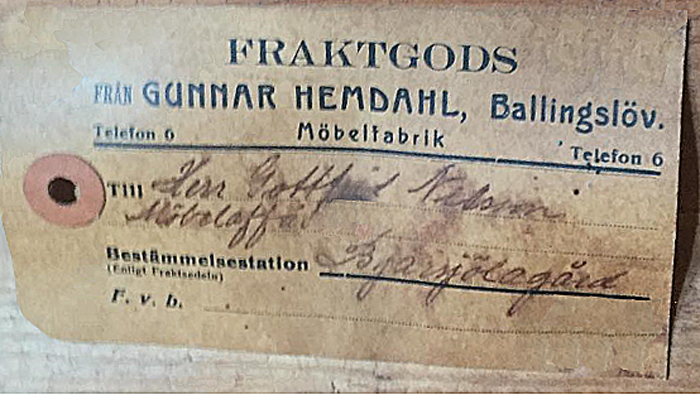 FRAKTGODS
FRÅN GUNNAR HEMDAHL, Ballingslöv.
Telefon 6 Möbelfabrik Telefon 6
Till Herr Gottfrid Nilsson
Möbelaffär
Bestämmelsestation Bjärsjölagård
(Enligt Fraktsedeln)
F. v. b.